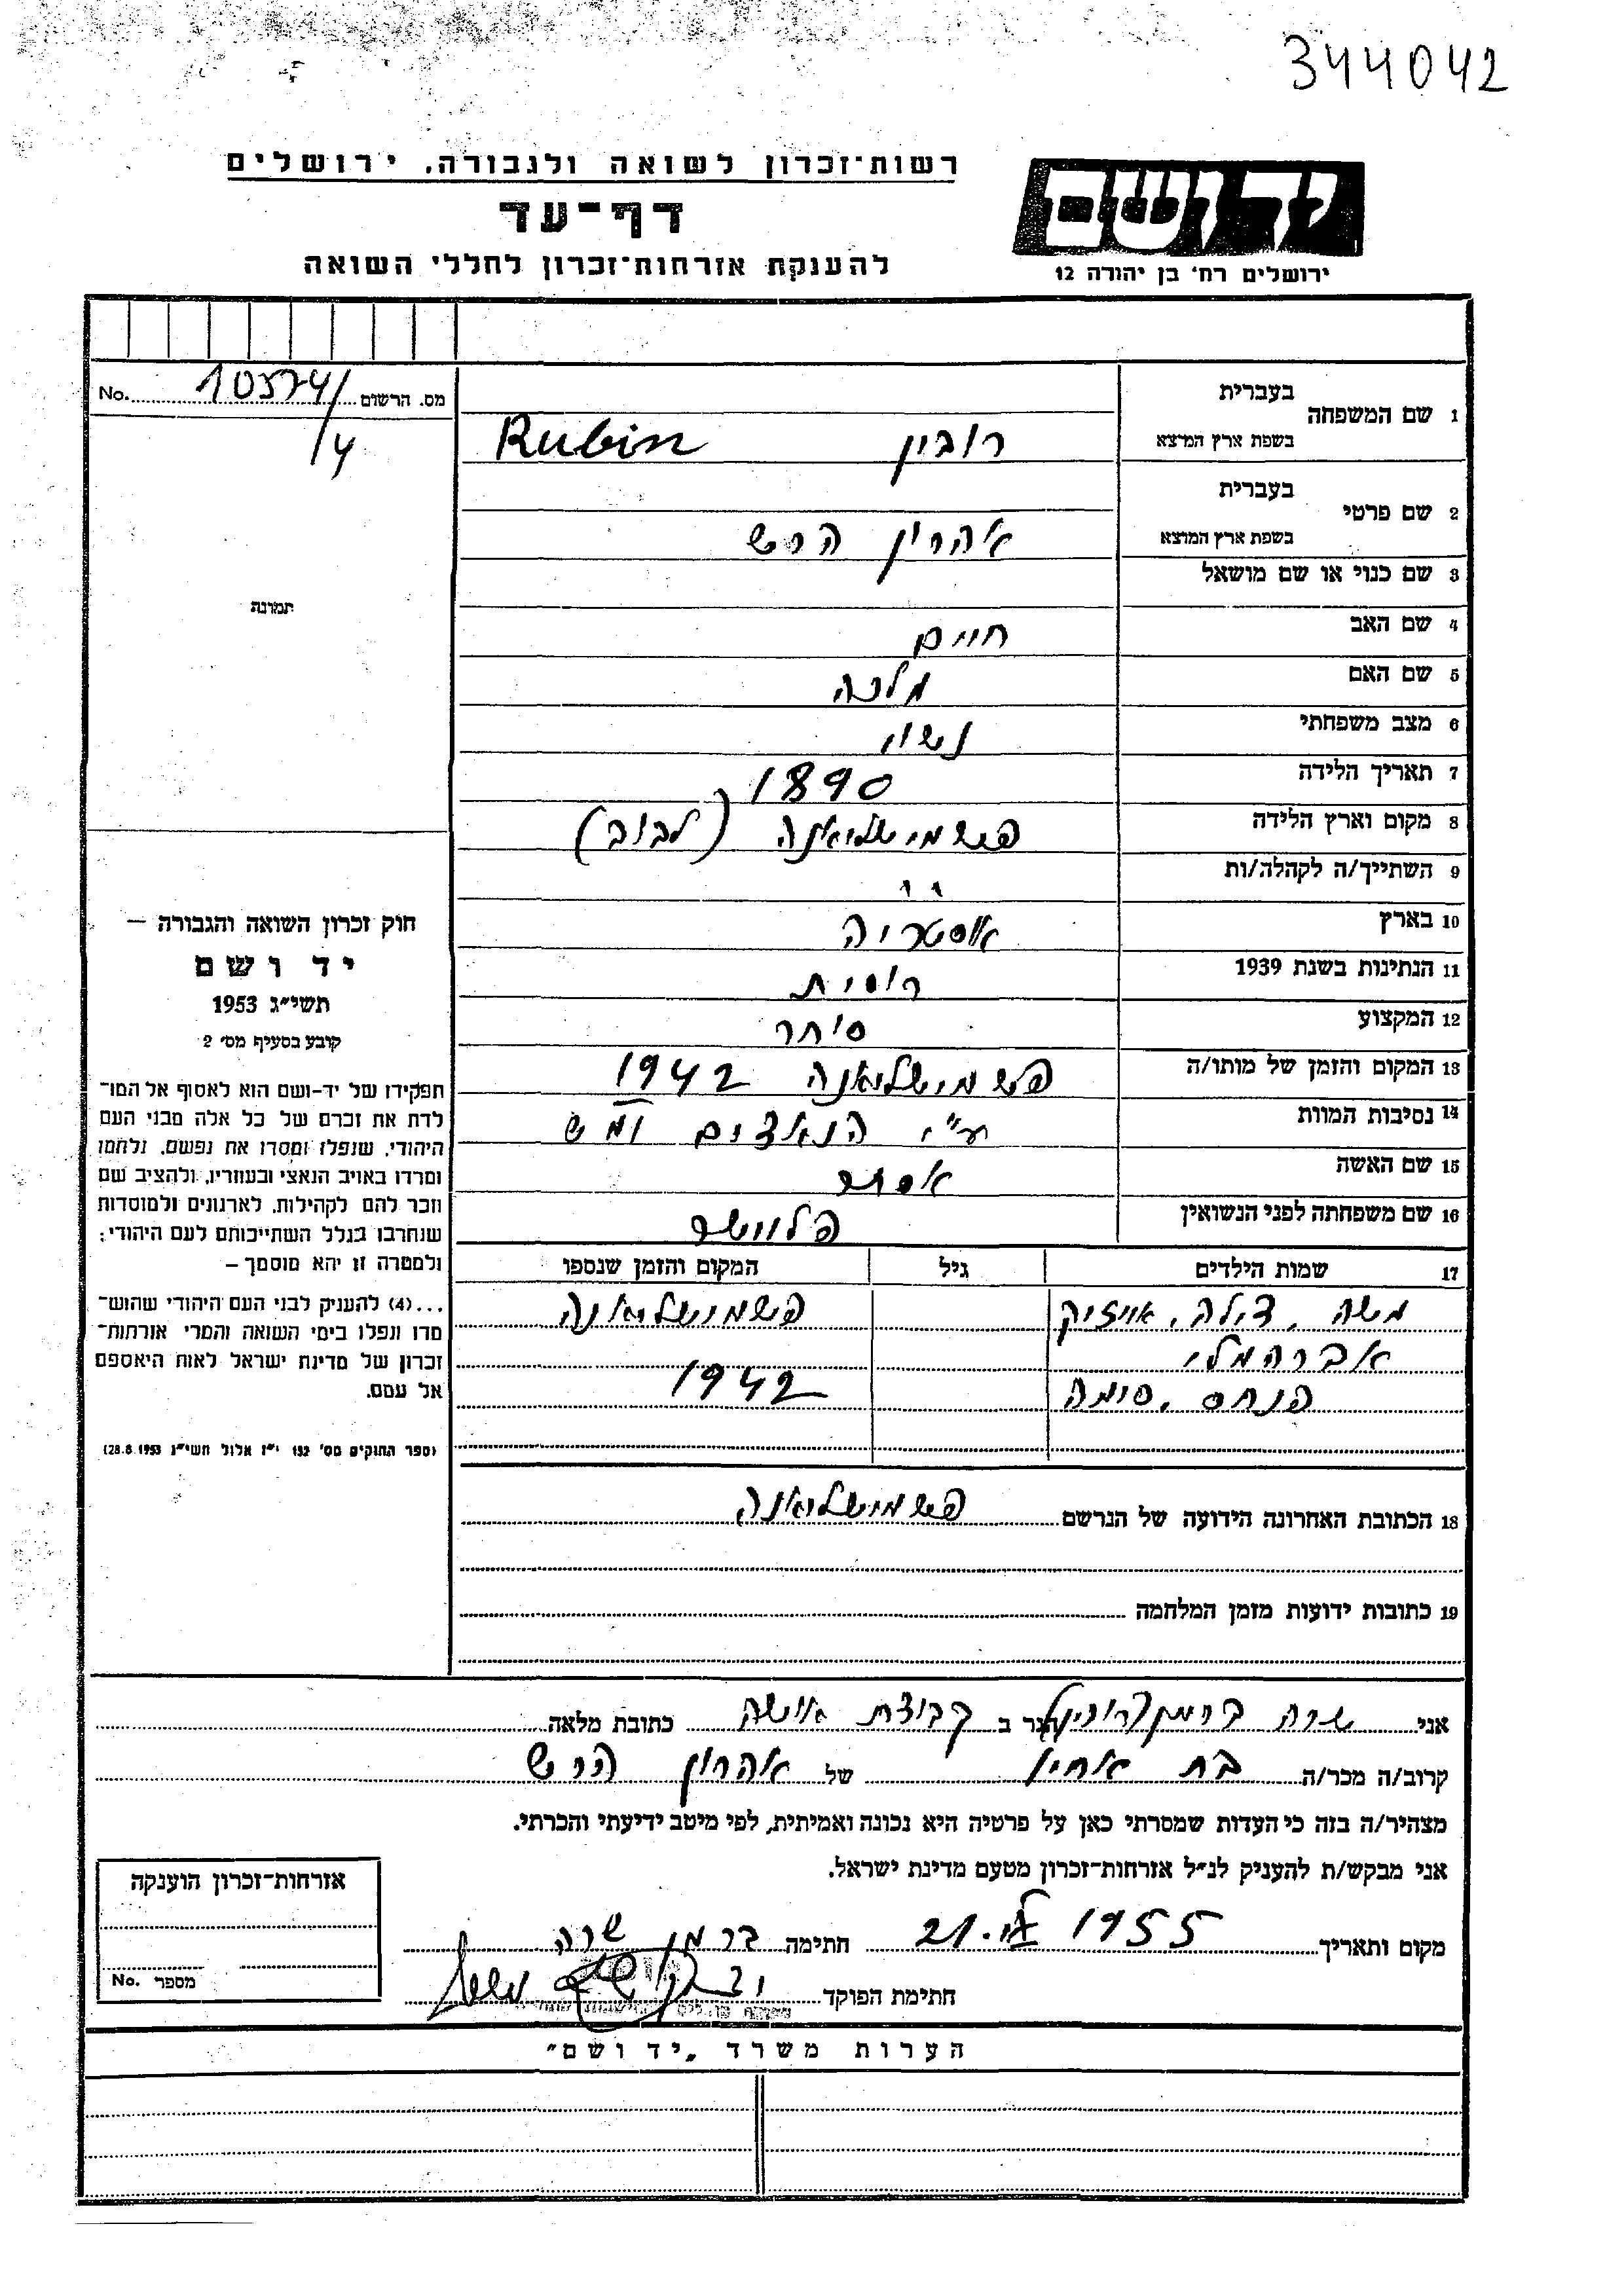 344042
רשות־זכרון לשואה ולגבורה, ירושלים
דף־עד
להענקת אזרחות־זכרון לחללי השואה
יד ושם
ירושלים רח' בן יהודה 12
מס. הרשום 10574/ No.
/4
1 שם המשפחה
בעברית
בשפת ארץ המוצא
רובין Rubin
2 שם פרטי
בעברית
בשפת ארץ המוצא
אהרון הרש
3 שם כנוי או שם מושאל
4 שם האב חיים
5 שם האם מלכה
6 מצב משפחתי נשוי
7 תאריך הלידה 1890
8 מקום וארץ הלידה פשמישליאנה (לבוב)
9 השתייך/ה לקהלה/ות ״
10 בארץ אוסטריה
11 הנתינות בשנת 1939 רוסית
12 המקצוע סוחר
13 המקום והזמן של מותו/ה פשמישליאנה 1942
14 נסיבות המוות ע"י הנאצים ימ"ש
15 שם האשה אסתר
16 שם משפחתה לפני הנשואין
17 שמות הילדים גיל המקום והזמן שנספו
משה, צילה, אייזיק פשמישליאנה
אברהמלי
פנחס, סימה 1942
18 הכתובת האחרונה הידועה של הנרשם פשמישליאנה
19 כתובות ידועות מזמן המלחמה
תמונה
חוק זכרון השואה והגבורה –
יד ושם
תשי״ג 1953
קובע בסעיף מס׳ 2
תפקידו של יד-ושם הוא לאסוף אל המו־
לדת את זכרם של כל אלה מבני העם
היהודי, שנפלו ומסרו את נפשם, נלחמו
ומרדו באויב הנאצי ובעוזריו, ולהציב שם
וזכר להם לקהילות, לארגונים ולמוסדות
שנחרבו בגלל השתייכותם לעם היהודי;
ולמטרה זו יהא מוסמך –
...(4) להעניק לבני העם היהודי שהוש־
מדו ונפלו בימי השואה והמרי אזרחות־
זכרון של מדינת ישראל לאות היאספם
אל עמם.
(ספר החוקים מס׳ 132 י״ז אלול תשי״ג 28.8.1953)
אני שרה ברמן הגר ב קבוצת אושה כתובת מלאה
קרוב/ה מכר/ה בת אחיו של אהרון הרש
מצהיר/ה בזה כי העדות שמסרתי כאן על פרטיה היא נכונה ואמיתית, לפי מיטב ידיעתי והכרתי.
אני מבקש/ת להעניק לנ״ל אזרחות־זכרון מטעם מדינת ישראל.
מקום ותאריך 21. 1955 חתימה ברמן שרה
חתימת הפוקד
אזרחות־זכרון הוענקה
מספר No.
הערות משרד „יד ושם״